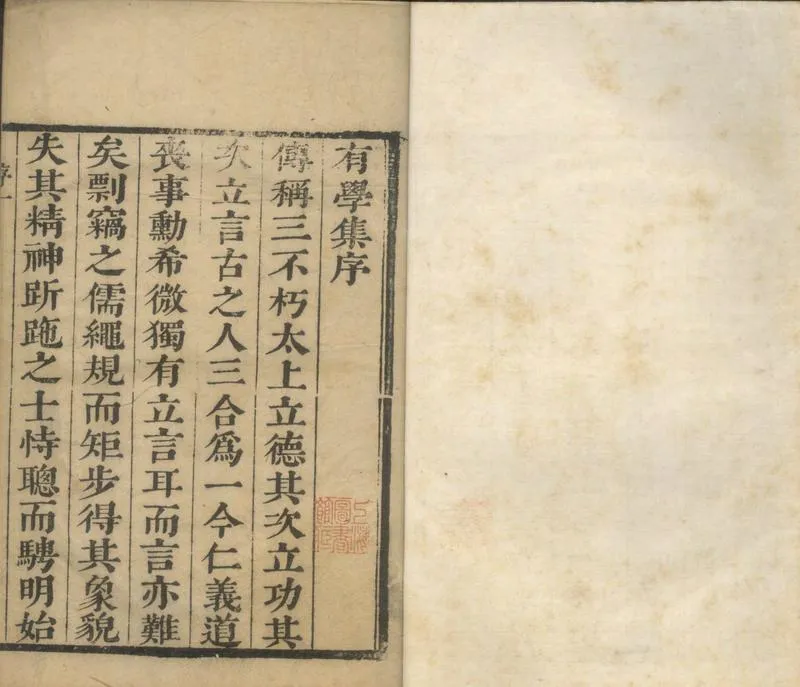 有學集序
傳稱三不朽太上立德其次立功其
次立言古之人三合爲一今仁義道
喪事勳希微獨有立言耳而言亦難
矣剽竊之儒繩規而矩步得其象貌
失其精神跅跎之士恃聰而騁明始
序一
上海
圖書
館藏